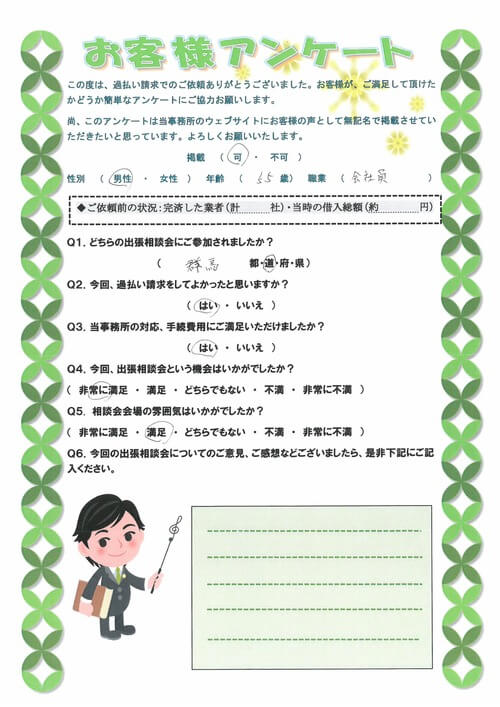 お客様アンケート
この度は、過払い請求でのご依頼ありがとうございました。お客様が、ご満足して頂けた
かどうか簡単なアンケートにご協力お願いします。
尚、このアンケートは当事務所のウェブサイトにお客様の声として無記名で掲載させてい
ただきたいと思っています。よろしくお願いいたします。
掲載 （ 可 ・ 不可 ）
性別 （ 男性 ・ 女性 ） 年齢 （ 55 歳） 職業 （ 会社員 ）
◆ご依頼前の状況：完済した業者（計 社）・当時の借入総額（約 円）
Q1. どちらの出張相談会にご参加されましたか？
（ 群馬 都・道・府・県）
Q2. 今回、過払い請求をしてよかったと思いますか？
（ はい ・ いいえ ）
Q3. 当事務所の対応、手続費用にご満足いただけましたか？
（ はい ・ いいえ ）
Q4. 今回、出張相談会という機会はいかがでしたか？
（ 非常に満足 ・ 満足 ・ どちらでもない ・ 不満 ・ 非常に不満 ）
Q5. 相談会会場の雰囲気はいかがでしたか？
（ 非常に満足 ・ 満足 ・ どちらでもない ・ 不満 ・ 非常に不満 ）
Q6. 今回の出張相談会についてのご意見、ご感想などございましたら、是非下記にご記
入ください。